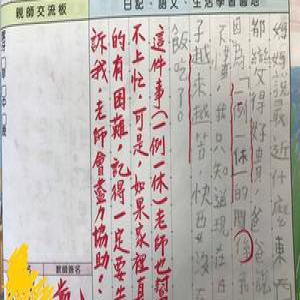 親師交流板
日記、語文、生活學習園地
媽媽說最近處東西
都變得好貴，爸爸說
因為「一例一休」的關係
不懂，我只知道現在
子越來越苦，快要沒
飯吃了。
這件事(一例一休)老師也幫
不上忙，可是，如果家裡真
的有困難，記得一定要告
訴我，老師會盡力協助？
教師簽名